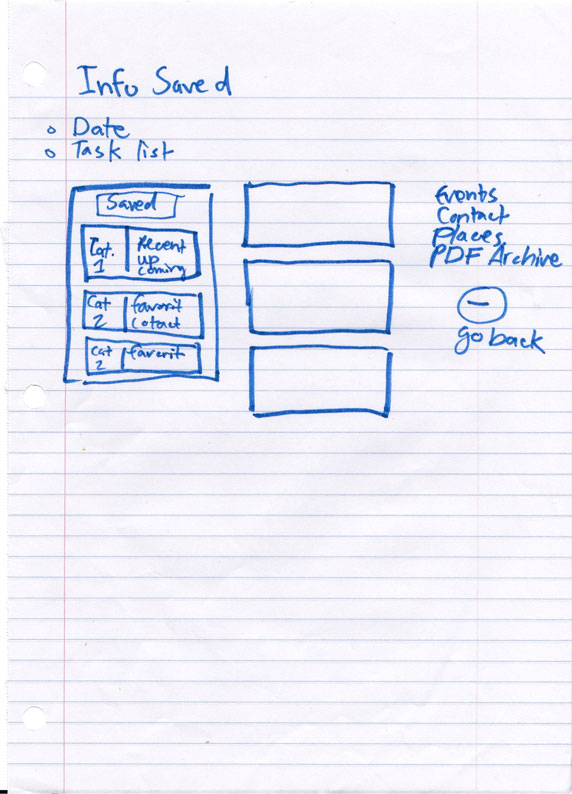 Info Saved
Date
Task list
Saved
Cat.
1
Recent
up
coming
Cat
2
favorit
Cotact
Cat
2
favorit
Events
Contact
Places
PDF Archive
go back